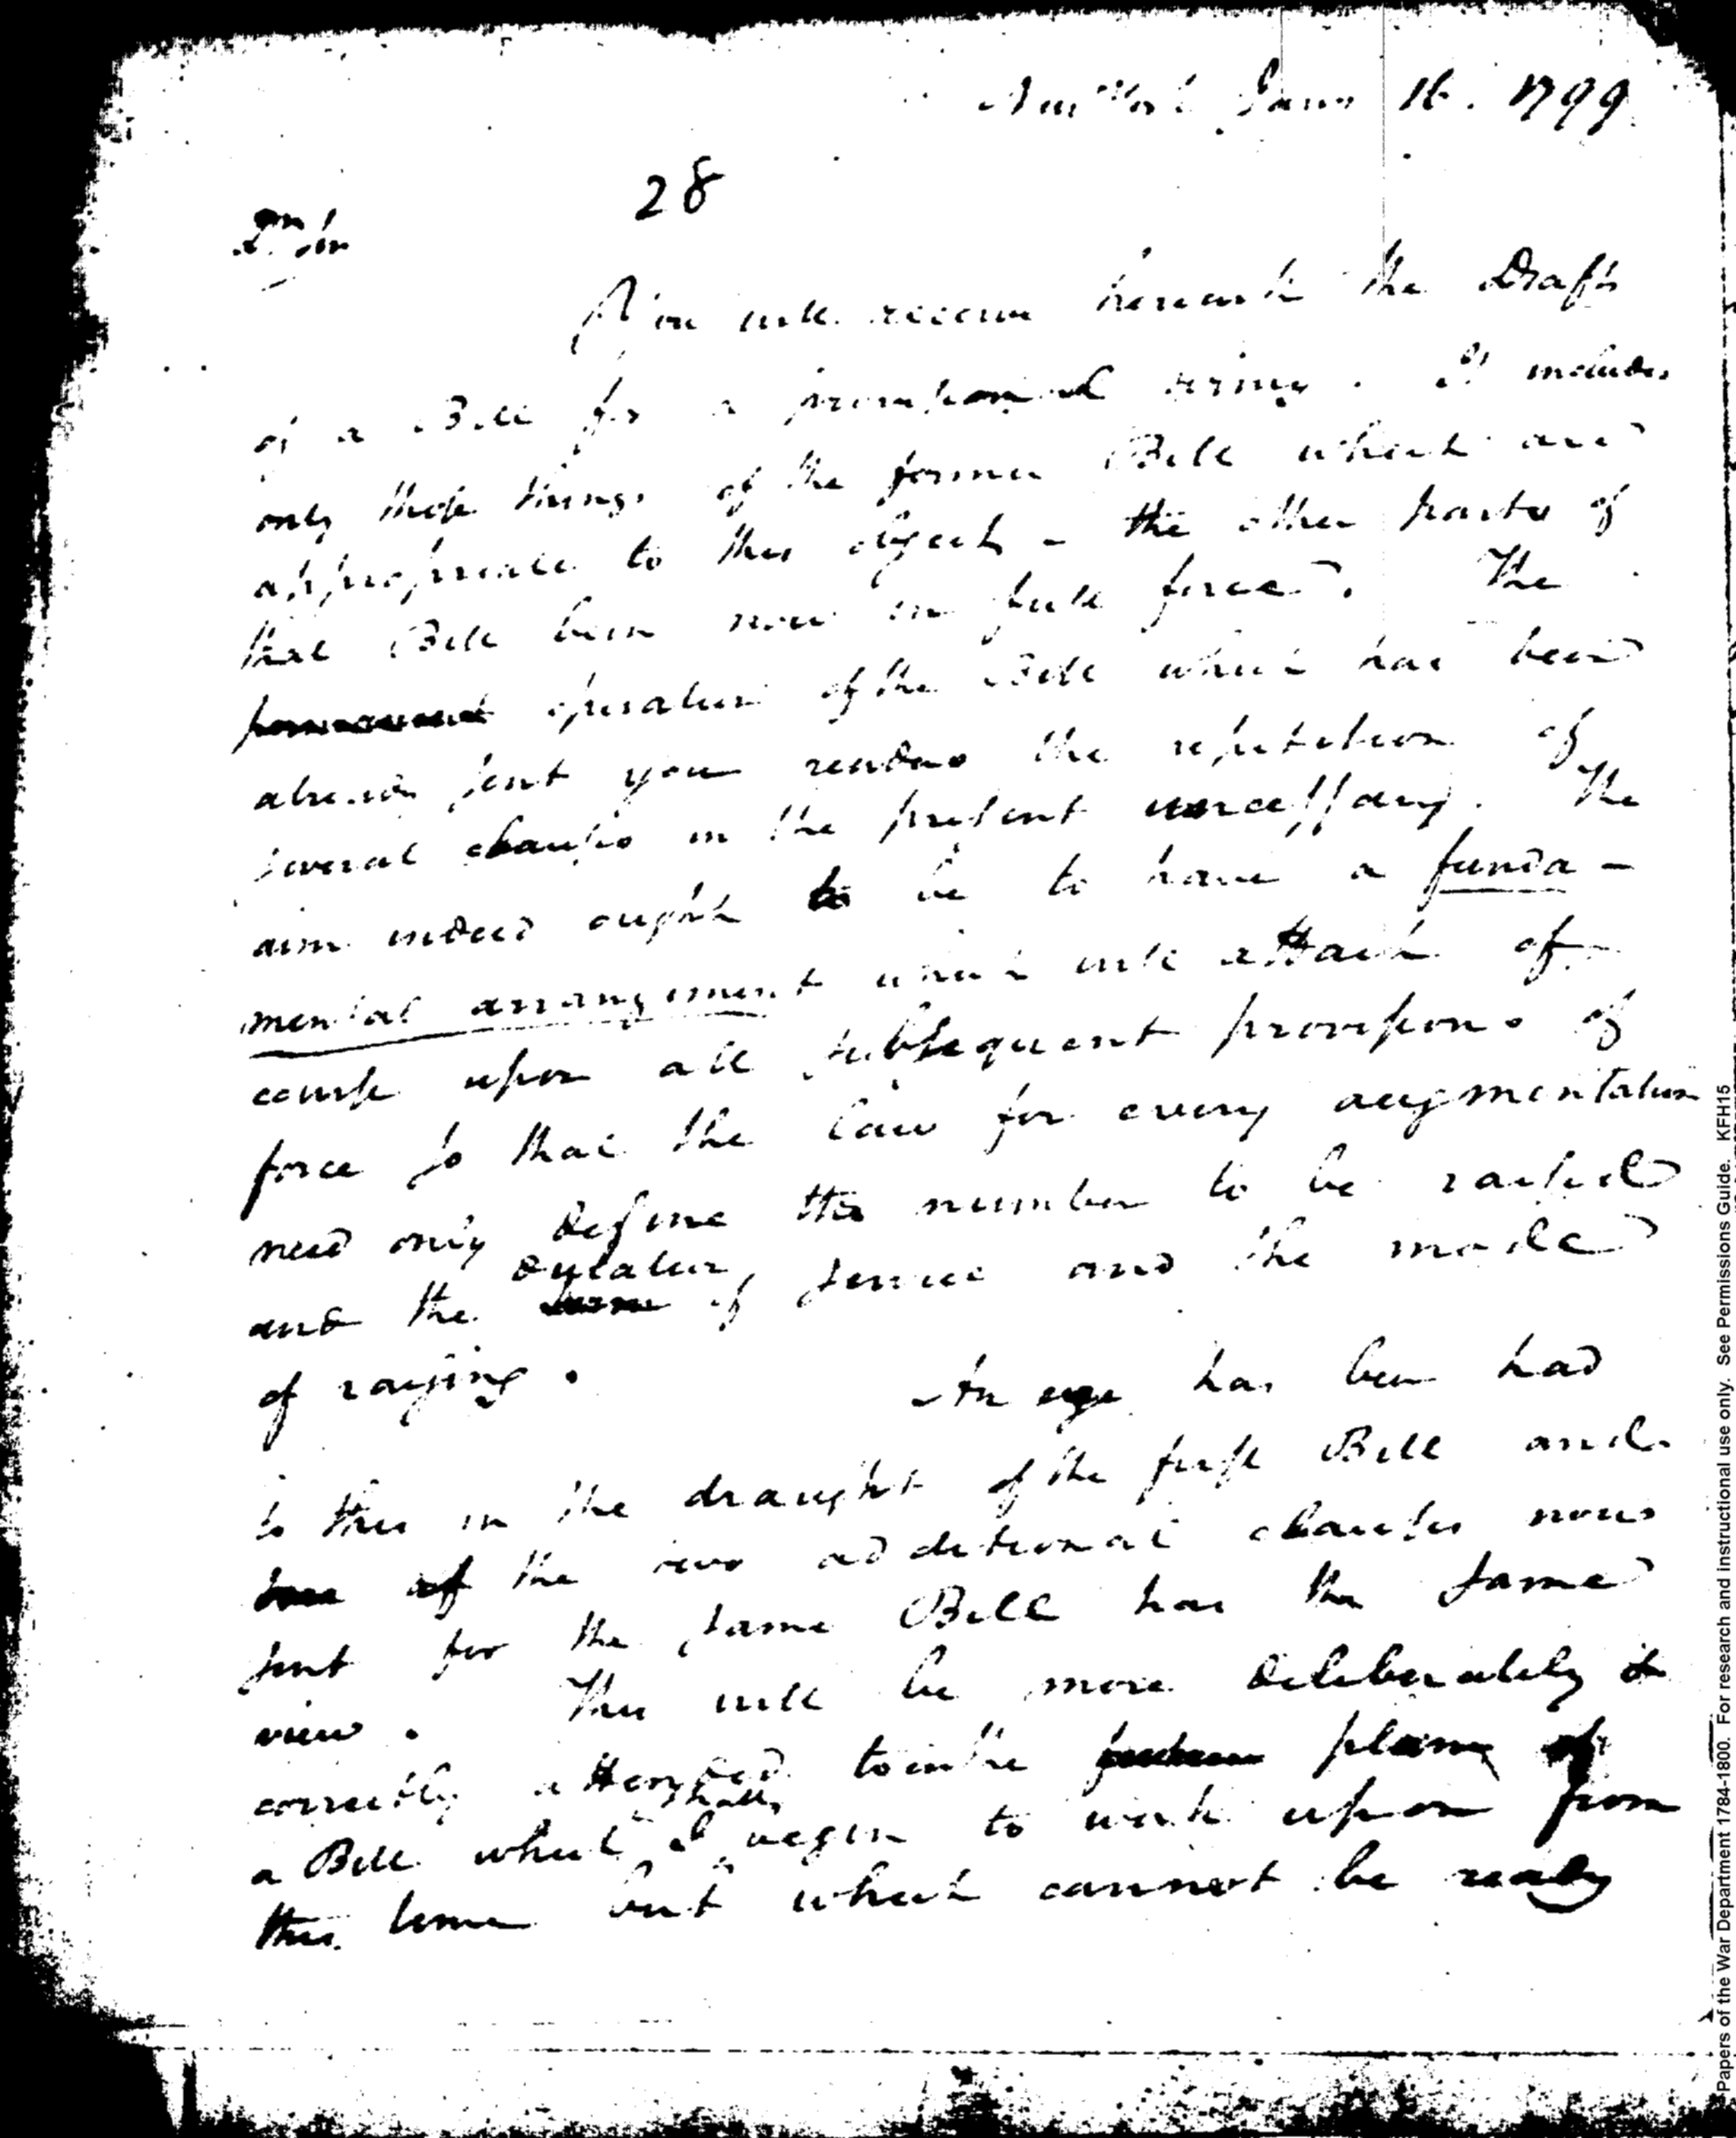 New York Jany 16. 1799
28
Dr Sir
You will receive herewith the Draft
of a Bill for a provisional army. It includes
only those things of the former Bill which are
appropriate to this object - the other parts of
that Bill been now in full force. The
permanent operation of the Bill which has been
already sent you renders the repetition of
several clauses in the present unnecessary. The
aim indeed ought to be to have a funda-
mental arrangement which will attach of
course upon all subsequent provisions of
force so that the law for every augmentation
need only define the number to be raised
duration,
and the term of service and the mode
of raising.
An eye has been had
to this in the draught of the first Bill and
of the two additional clauses now
sent for the same Bill has the same
view. This will be more deliberately &
correctly attended to in the plan of
shall
a Bill which I begin to work upon from
this time but which cannot be ready
Papers of the War Department 1784-1800. For research and instructional use only. See Permissions Guide. KFH15